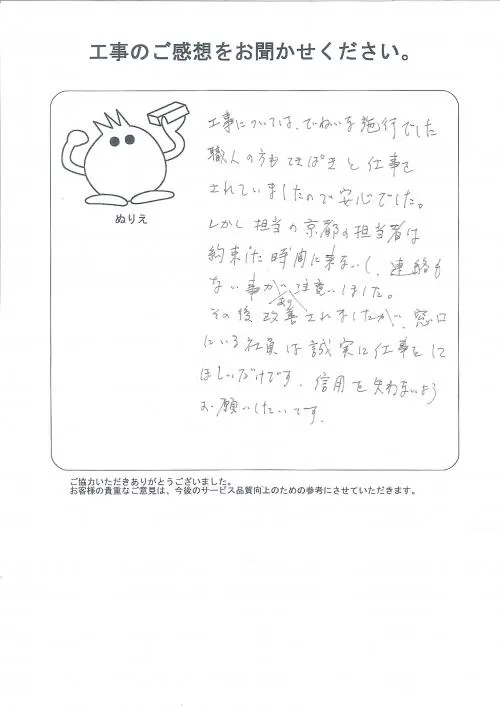 工事のご感想をお聞かせください。
ぬりえ
工事については、ていねいな施行でした
職人の方もてきぱきと仕事を
されていましたので安心でした。
しかし担当の京都の担当者は
約束した時間に来ないし、連絡も
ない事があり注意しました。
その後改善されましたが、窓口
にいる社員は誠実に仕事をして
ほしいだけです。信用を失わないよう
お願いしたいです。
ご協力いただきありがとうございました。
お客様の貴重なご意見は、今後のサービス品質向上のための参考にさせていただきます。